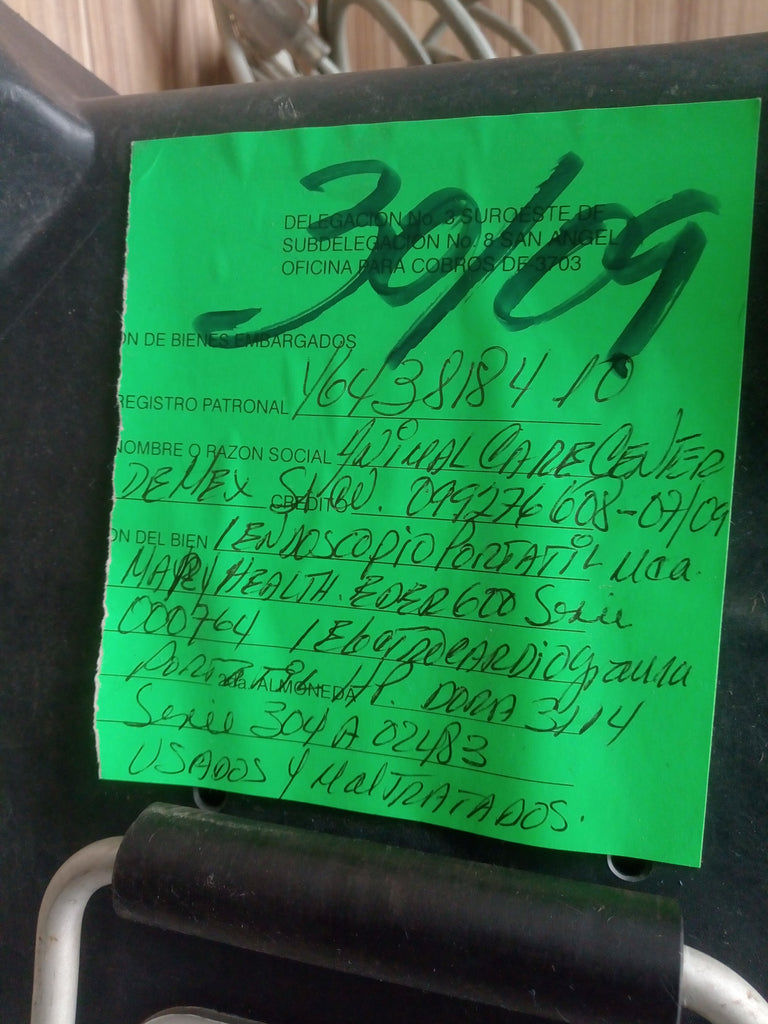 30/09
DELEGACION No. 3 SUROESTE DF
SUBDELEGACION No. 8 SAN ANGEL
OFICINA PARA COBROS DF-3703
ON DE BIENES EMBARGADOS
REGISTRO PATRONAL Y6438184 10
NOMBRE O RAZON SOCIAL ANIMAL CARE CENTER
DE MEX CREDITO 099276608-07/09
ON DEL BIEN 1 ENDOSCOPIO PORTATIL Mca.
HEALTH. EDER 600 Serie
000764 1 Electrocardiograma
PORTATIL HP. DORA 3114
2da. ALMONEDA
Serie 304 A 02483
USADOS Y MalTRATADOS.